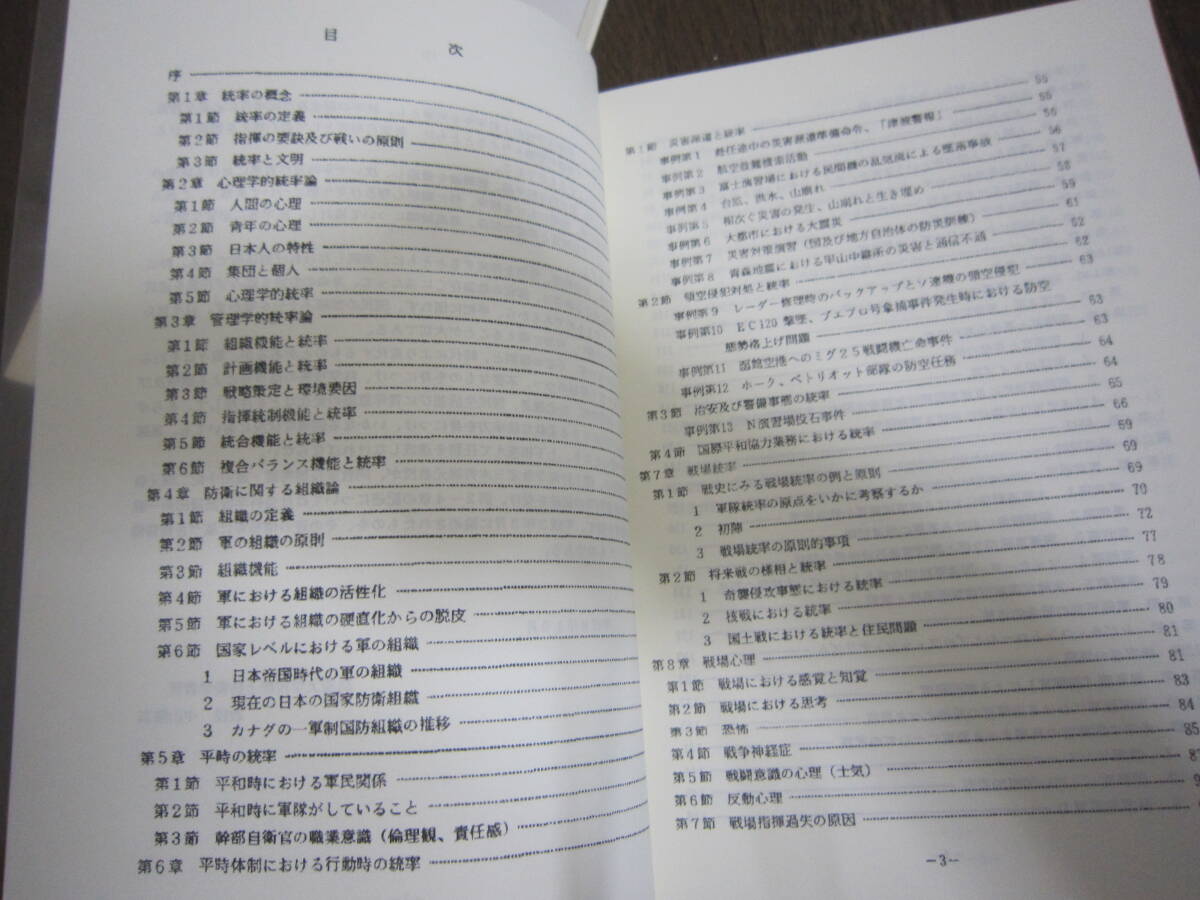 目 次
序
第1章 統率の概念
第1節 統率の定義
第2節 指揮の要訣及び戦いの原則
第3節 統率と文明
第2章 心理学的統率論
第1節 人間の心理
第2節 青年の心理
第3節 日本人の特性
第4節 集団と個人
第5節 心理学的統率
第3章 管理学的統率論
第1節 組織機能と統率
第2節 計画機能と統率
第3節 戦略策定と環境要因
第4節 指揮統制機能と統率
第5節 統合機能と統率
第6節 複合バランス機能と統率
第4章 防衛に関する組織論
第1節 組織の定義
第2節 軍の組織の原則
第3節 組織機能
第4節 軍における組織の活性化
第5節 軍における組織の硬直化からの脱皮
第6節 国家レベルにおける軍の組織
1 日本帝国時代の軍の組織
2 現在の日本の国家防衛組織
3 カナダの一軍制国防組織の推移
第5章 平時の統率
第1節 平和時における軍民関係
第2節 平和時に軍隊がしていること
第3節 幹部自衛官の職業意識(倫理観、責任感)
第6章 平時体制における行動時の統率
第1節 災害派遣と統率 55
事例第1 赴任途中の災害派遣準備命令、「津波警報」 55
事例第2 航空救難捜索活動 55
事例第3 富士演習場における民間機の乱気流による墜落事故 56
事例第4 台風、洪水、山崩れ 57
事例第5 相次ぐ災害の発生、山崩れと生き埋め 58
事例第6 大都市における大震災 59
事例第7 災害対策演習(国及び地方自治体の防災訓練) 61
事例第8 青森地震における甲山中継所の災害と通信不通 62
第2節 領空侵犯対処と統率 62
事例第9 レーダー修理時のバックアップとソ連機の領空侵犯 63
事例第10 EC120撃墜、プエブロ号拿捕事件発生時における防空
態勢格上げ問題 63
事例第11 函館空港へのミグ25戦闘機亡命事件 63
事例第12 ホーク、ペトリオット部隊の防空任務 64
第3節 治安及び警備事態の統率 64
事例第13 N演習場投石事件 65
第4節 国際平和協力業務における統率 66
第7章 戦場統率 69
第1節 戦史にみる戦場統率の例と原則 69
1 軍隊統率の原点をいかに考察するか 69
2 初陣 70
3 戦場統率の原則的事項 72
第2節 将来戦の様相と統率 77
1 奇襲侵攻事態における統率 78
2 核戦における統率 79
3 国土戦における統率と住民問題 80
第8章 戦場心理 81
第1節 戦場における感覚と知覚 81
第2節 戦場における思考 83
第3節 恐怖 84
第4節 戦争神経症 85
第5節 戦闘意識の心理(士気)
第6節 反動心理
第7節 戦場指揮過失の原因
—3—